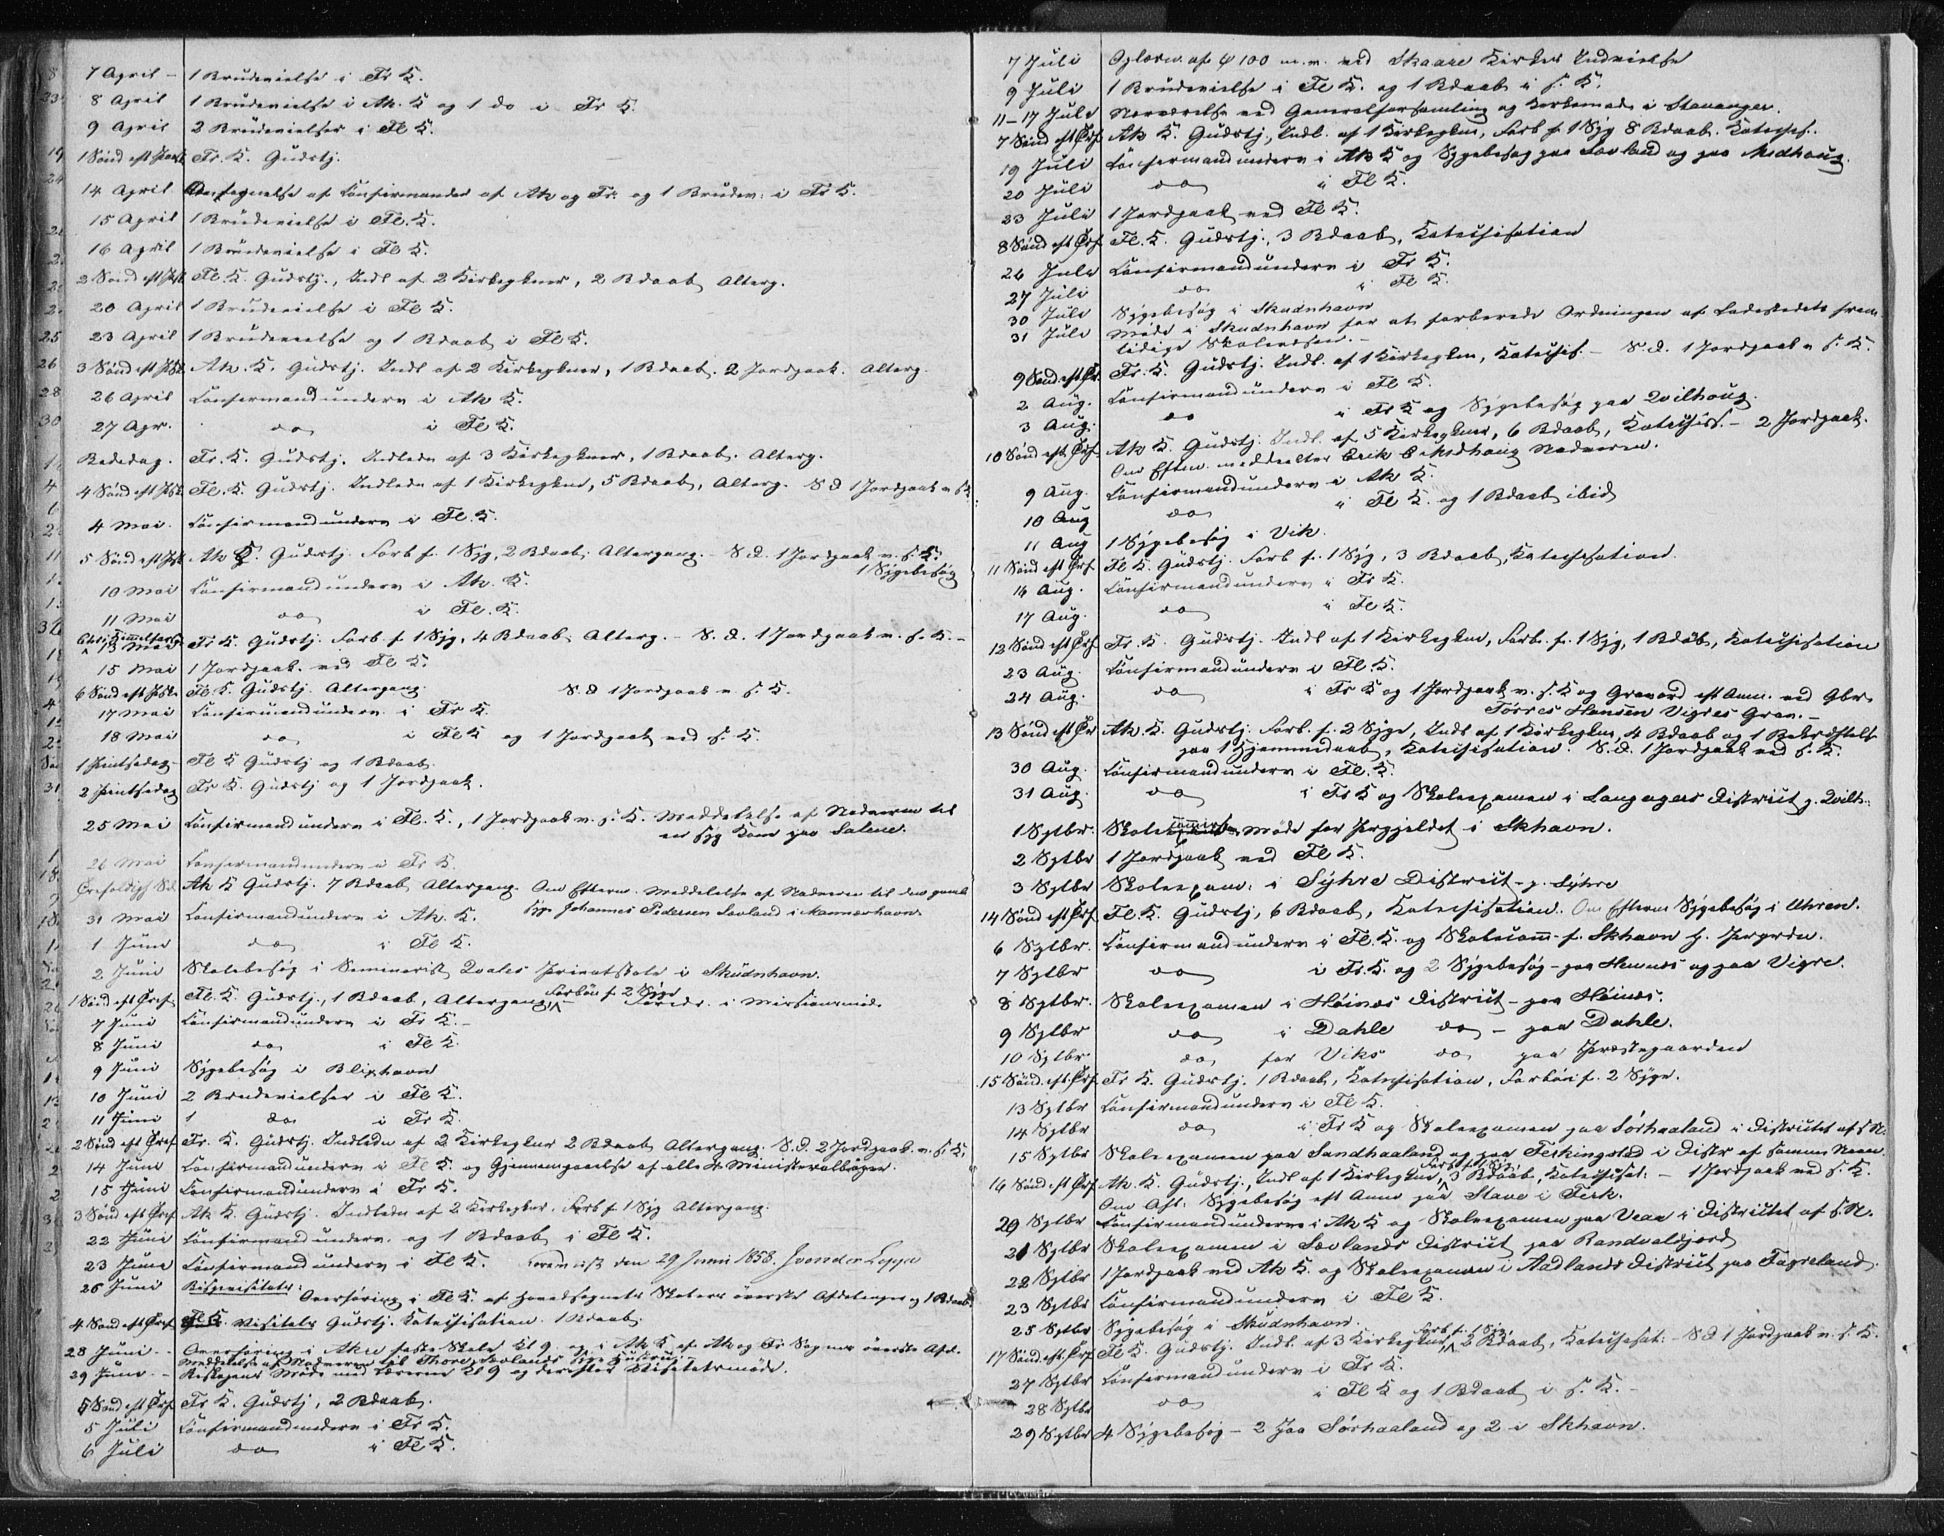 7 April - 1 Brudevielse i Fr K.
8 April 1 Brudevielse i Ak. K og 1 do i Fr K.
9 April 2 Brudevielser i Fl K.
1 Sønd eft Paask Fr. K. Gudstj.
14 April Antegnelse af Confirmander af Ak og Fr. og 1 Brudev: i Fr K.
15 April 1 Brudevielse i Fl. K.
16 April 1 Brudevielse i Fl K.
2 Sønd eft Psk Fl. K. Gudstj., Indl af 2 Kirkegkner, 2 Bdaab, Alterg.
20 April 1 Brudevielse i Fl K.
23 April 1 Brudevielse og 1 Bdaab i Fl K.
3 Sønd eft Psk Ak. K. Gudstj. Indl af 2 Kirkegkner, 1 Bdaab. 2 Jordpaak. Alterg.
26 April Confirmandunderv i Ak K.
27 Apr. do i Fl K.
Bededag. Fr. K. Gudstj. Indledn af 3 Kirkegkner, 1 Bdaab. Alterg.
4 Sønd eft Psk Fl. K. Gudstj. Indledn af 1 Kirkegkne, 5 Bdaab, Alterg. S D 1 Jordpaak v s K
4 Mai. Confirmandunderv i Fl. K.
5 Sønd eft Psk Ak K. Gudstj. Forb f. 1 Syg, 2 Bdaab. Altergang. - S. d. 1 Jordpaak v. s. K.
1 Sygebesøg
10 Mai Confirmandunderv i Ak. K.
11 Mai do i Fl. K.
Chri Himmelfart
13 Mai Fr K. Gudstj. Forb f. 1 Syg, 4 Bdaab. Alterg. - S. d. 1 Jordpaak v. s. K. -
15 Mai 1 Jordpaak. ved Fl K.
6 Sønd eft Paske Fl K. Gudstj. Altergang. S d 1 Jordpaak v s. K.
17 Mai Confirmandunderv. i Fr K.
18 Mai do i Fl K og 1 Jordpaak ved s. K.
1 Pintsedag - Fl K Gudstj og 1 Bdaab.
2 Pintsedag Fr K. Gudstj og 1 Jordpaak.
25 Mai Confirmandunderv i Fl. K., 1 Jordpaak v. s. K. Meddelelse af Nadveren til
en syg Kone paa Salene.
26 Mai Confirmandunderv i Fr K.
Trefoldigh S.d. Ak K Gudstj. 7 Bdaab Altergang. Om Efterm. Meddelelse af Nadveren til den gamle
31 Mai Confirmandunderv i Ak. K. syge Johannes Pedersen Sævland i Mannæshavn.
1 Juni do i Fl K.
2 Juni Skolebesøg i Seminarist Qvales Privatskole i Skudnhavn.
1 Sønd eft Tref. Fl. K. Gudstj., 1 Bdaab, Altergang Forbøn f. 2 Syge - Foredr. i Missionsmød.
7 Juni Confirmandunderv i Fr K. -
8 Juni do i Fl K.
9 Juni Sygebesøg i Blixhavn
10 Juni 2 Brudevielser i Fl K.
11 Juni 1 do i Fr K.
2 Sønd eft Tref Fr. K. Gudstj. Indledn af 2 Kirkegkner 2 Bdaab Altergang. S. d. 2 Jordpaak. v. s. K.
14 Juni Confirmandunderv i Fl K. og Gjennemgaaelse af alle Ministerialbøger.
15 Juni Confirmandunderv i Fr K.
3 Sønd eft Tref Ak K. Gudstj. Indledn af 2 Kirkegkner. Forb f 1 Syg Altergang.
22 Juni Confirmandunderv. og 1 Bdaab i Fl K.
23 Juni Confirmandunderv i Fl K. Forevist den 29 Juni 1858.
26 Juni Bispevisitats: Overhøring i Fl K. af Hovedsognets Skolers øverste Afdelinger og 1 Bdaab.
4 Sønd eft Tref Fl K. Visitats Gudstj. Katechisation. 1 Bdaab.
28 Juni. - Overhøring i Akre faste Skole Kl 9. og i Ak K af Ak og Fr Sognes øverste Afd.
Meddelelse af Nadveren til Thore Sævlands syge Hustru.
29 Juni. - Biskopens Møde med Lærerne Kl 9 og derefter Visitatsmøde.
5 Sønd eft Tref Fr K. Gudstj, 2 Bdaab.
5 Juli Confirmandunderv i Fr K.
6 Juli do i Fl K.
7 Juli Oplæsn. af ψ 100 m. v. ved Skaare Kirkes Indvielse
9 Juli 1 Brudevielse i Fl K. og 1 Bdaab i s. K.
11-17 Juli Nærværelse ved Generalforsamling og Kirkemøde i Stavanger.
7 Sønd eft Tref Ak K. Gudstj, Indl. af 1 Kirkegkne, Forb f. 1 Syg 8 Bdaab. Kateches.
19 Juli Confirmandunderv i Ak K og Sygebesøg paa Sævland og paa Medhoug.
20 Juli do i Fl K.
23 Juli 1 Jordpaak ved Fl K.
8 Sønd eft Tref Fl. K. Gudstj., 3 Bdaab, Katechisation
26 Juli Confirmandunderv i Fr K.
27 Juli do i Fl K.
30 Juli Sygebesøg i Skudnhavn
31 Juli Møde i Skudnhavn for at forberede Ordningen af Ladestedets frem-
tidige Skolevæsen. -
9 Sønd eft Tr. Fr. K. Gudstj. Indl. af 1 Kirkegkn, Kateches. - S. d. 1 Jordpaak v s. K.
2 Aug. Confirmandunderv i Fl K.
3 Aug. do i Fr K og Sygebesøg paa Qvilhoug.
10 Sønd eft Tref Ak K. Gudstj. Indl. af 5 Kirkegkner, 6 Bdaab, Katechis. - 2 Jordpaak.
Om Efterm. meddeeltes Erik Medhoug Nadveren.
9 Aug. Confirmandunderv i Ak K.
10 Aug do i Fl K. og 1 Bdaab ibid
11 Aug 1 Sygebesøg i Vik.
11 Sønd eft Tref Fl K. Gudstj. Forb f. 1 Syg, 3 Bdaab, Katechisation.
16 Aug. Confirmandunderv i Fr K.
17 Aug. do i Fl K.
12 Sønd eft Tref Fr. K. Gudstj. Indl af 1 Kirkegkne, Forb. f. 1 Syg, 1 Bdab, Katechisation
23 Aug. Confirmandunderv i Fl K.
24 Aug. do i Fr K og 1 Jordpaak v. s. K og Gravord eft Anm. ved Gbr.
Torres Hansen Vigres Grav. -
13 Sønd eft Tr Ak. K. Gudstj. Forb. f. 2 Syge, Indl af 1 Kirkegkne, 4 Bdaab og 1 Bekræftelse
paa 1 Hjemmedaab, Katechisation. S. d. 1 Jordpaak ved s. K.
30 Aug. Confirmandunderv i Fl. K.
31 Aug. do i Fr K og Skoleexamen i Langagers District p. Qvilh:
1 Sptbr. Skolecommiss. møde for Prgjeldet i Skhavn.
2 Sptbr 1 Jordpaak ved Fl K.
3 Sptbr Skoleexam: i Syhre District - p. Syhre
14 Sønd eft Tref Fl. K. Gudstj, 6 Bdaab, Katechisation. Om Efterm Sygebesøg i Uhren.
6 Sptbr. Confirmandunderv i Fl. K. og Skolecomm f. Skhavn p. Prgrdn.
7 Sptbr do i Fr. K. og 2 Sygebesøg - paa Hemnes og paa Vigre.
8 Sptbr. Skoleexamen i Høines District - paa Høines.
9 Sptbr do i Dahle do - paa Dahle.
10 Sptbr do for Viks do paa Præstegaarden
15 Sønd. eft Tref. Fr K. Gudstj. 1 Bdaab, Katechisation, Forbøn f. 2 Syge.
13 Sptbr Confirmandunderv i Fl K.
14 Sptbr do i Fr K og Skoleexamen paa Sørhaaland i Districtet af s N.
15 Sptbr Skoleexamen paa Sandhaaland og paa Ferkingstad i Distr af samme Navn.
16 Sønd eft Tref Ak. K. Gudstj, Indl af 1 Kirkegkne, Forb f 1 Syg, 3 Bdaab, Katechisat: - 1 Jordpaak ved s. K.
Om Aft. Sygebesøg eft Anm paa Stave i Ferk.
20 Sptbr Confirmandunderv i Ak K og Skoleexamen paa Veaa i Districtet af s. N.
21 Sptbr Skoleexamen i Sævlands District paa Randvalsjord
22 Sptbr 1 Jordpaak ved Ak K. og Skoleexamen i Aadlands District paa Fagreland.
23 Sptbr Confirmandunderv i Fl K.
25 Sptbr Sygebesøg i Skudnhavn.
17 Sønd. eft. Tref Fl K. Gudstj. Indl. af 3 Kirkegkner, Forb f. 1 Syg, 2 Bdaab, Katechisat: - S d 1 Jordpaak v. s. K.
27 Sptbr Confirmandunderv i Fr K.
28 Sptbr do i Fl K og 1 Bdaab i s. K. -
29 Sptbr 4 Sygebesøg - 2 paa Sørhaaland og 2 i Skhavn.